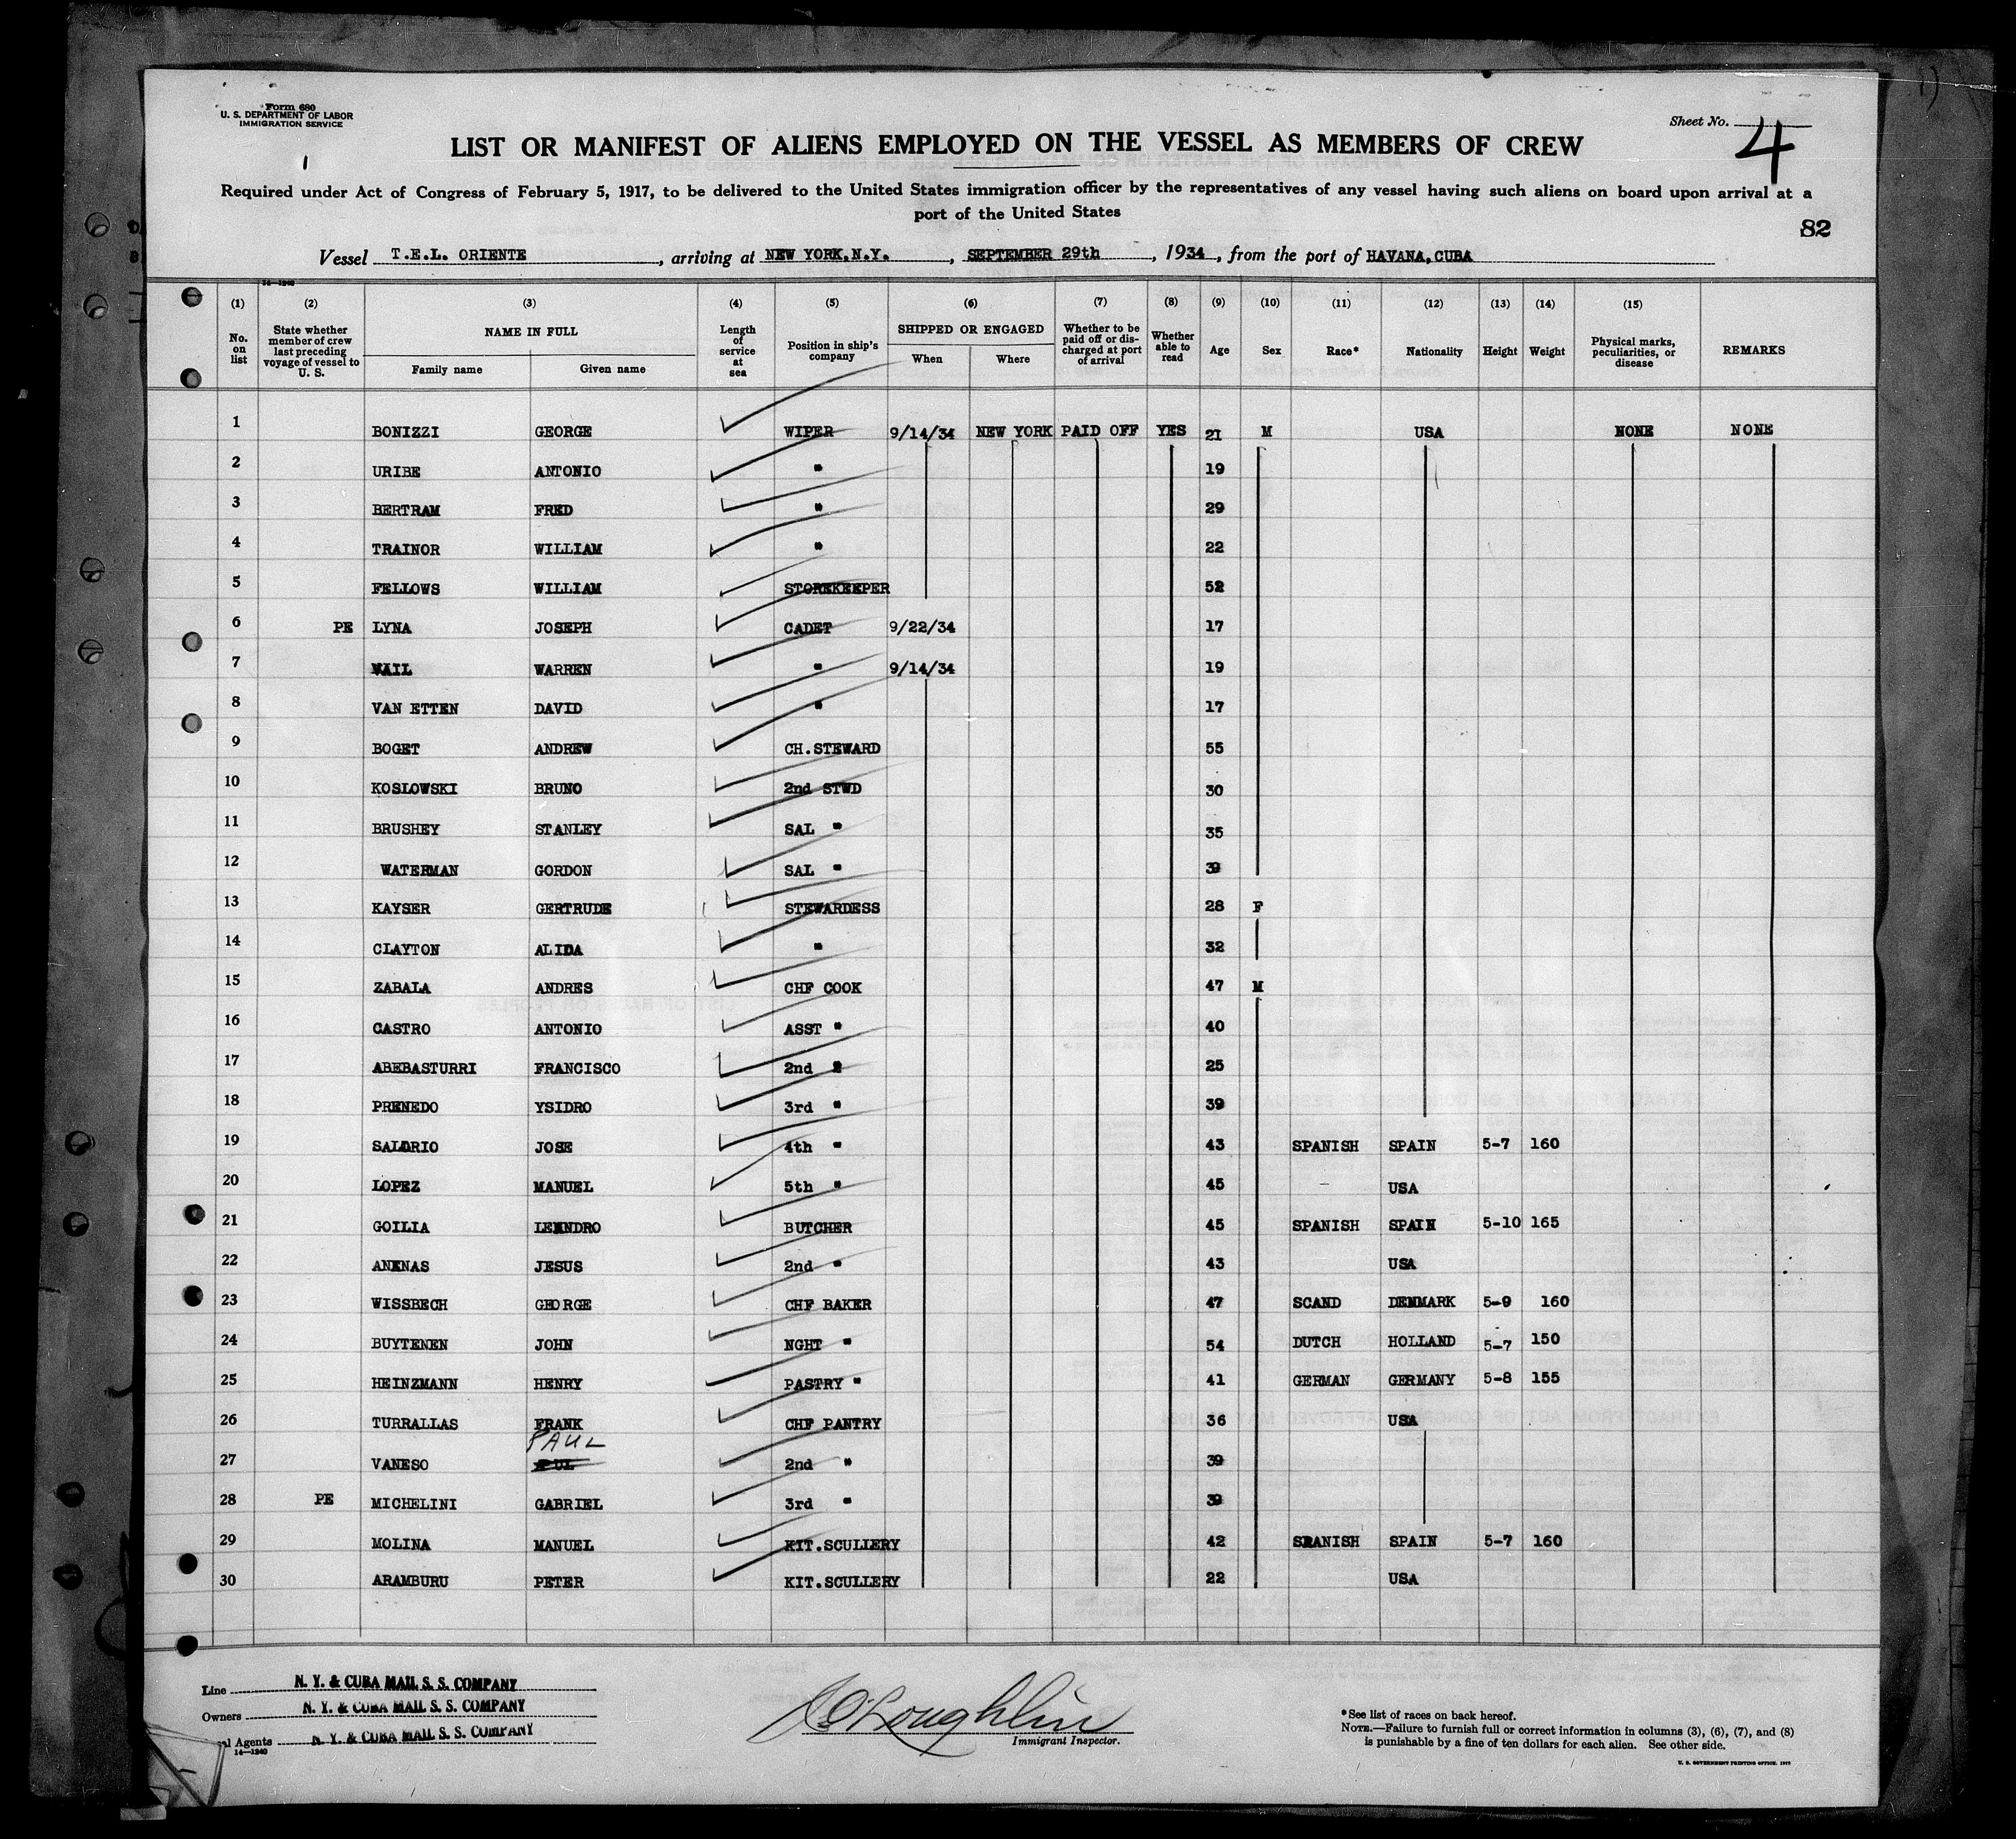 Form 680
U. S. DEPARTMENT OF LABOR
IMMIGRATION SERVICE
Sheet No. 4
LIST OR MANIFEST OF ALIENS EMPLOYED ON THE VESSEL AS MEMBERS OF CREW
Required under Act of Congress of February 5, 1917, to be delivered to the United States immigration officer by the representatives of any vessel having such aliens on board upon arrival at a
port of the United States
82
Vessel T.E.L. ORIENTE, arriving at NEW YORK.N.Y., SEPTEMBER 29th, 1934, from the port of HAVANA,CUBA
14—1240
(1) (2) (3) (4) (5) (6) (7) (8) (9) (10) (11) (12) (13) (14) (15)
No. on list State whether member of crew last preceding voyage of vessel to U. S. NAME IN FULL Family name Given name Length of service at sea Position in ship's company SHIPPED OR ENGAGED When Where Whether to be paid off or discharged at port of arrival Whether able to read Age Sex Race* Nationality Height Weight Physical marks, peculiarities, or disease REMARKS
1 BONIZZI GEORGE WIPER 9/14/34 NEW YORK PAID OFF YES 21 M USA NONE NONE
2 URIBE ANTONIO " 19
3 BERTRAM FRED " 29
4 TRAINOR WILLIAM " 22
5 FELLOWS WILLIAM STOREKEEPER 52
6 PE LYNA JOSEPH CADET 9/22/34 17
7 VAIL WARREN " 9/14/34 19
8 VAN ETTEN DAVID " 17
9 BOGET ANDREW CH.STEWARD 55
10 KOSLOWSKI BRUNO 2nd STWD 30
11 BRUSHEY STANLEY SAL " 35
12 WATERMAN GORDON SAL " 39
13 KAYSER GERTRUDE STEWARDESS 28 F
14 CLAYTON ALIDA " 32
15 ZABALA ANDRES CHF COOK 47 M
16 CASTRO ANTONIO ASST " 40
17 ABEBASTURRI FRANCISCO 2nd " 25
18 PRENEDO YSIDRO 3rd " 39
19 SALORIO JOSE 4th " 43 SPANISH SPAIN 5-7 160
20 LOPEZ MANUEL 5th " 45 USA
21 GOILIA LEANDRO BUTCHER 45 SPANISH SPAIN 5-10 165
22 ANENAS JESUS 2nd " 43 USA
23 WISSBECH GEORGE CHF BAKER 47 SCAND DENMARK 5-9 160
24 BUYTENEN JOHN NGHT " 54 DUTCH HOLLAND 5-7 150
25 HEINZMANN HENRY PASTRY " 41 GERMAN GERMANY 5-8 155
26 TURRALLAS FRANK CHF PANTRY 36 USA
PAUL
27 VANESO PUL 2nd " 39
28 PE MICHELINI GABRIEL 3rd " 39
29 MOLINA MANUEL KIT.SCULLERY 42 SPANISH SPAIN 5-7 160
30 ARAMBURU PETER KIT.SCULLERY 22 USA
Line N. Y. & CUBA MAIL S. S. COMPANY
Owners N. Y. & CUBA MAIL S. S. COMPANY
al Agents N. Y. & CUBA MAIL S. S. COMPANY
14—1240
Immigrant Inspector.
*See list of races on back hereof.
NOTE.—Failure to furnish full or correct information in columns (3), (6), (7), and (8)
is punishable by a fine of ten dollars for each alien. See other side.
U. S. GOVERNMENT PRINTING OFFICE